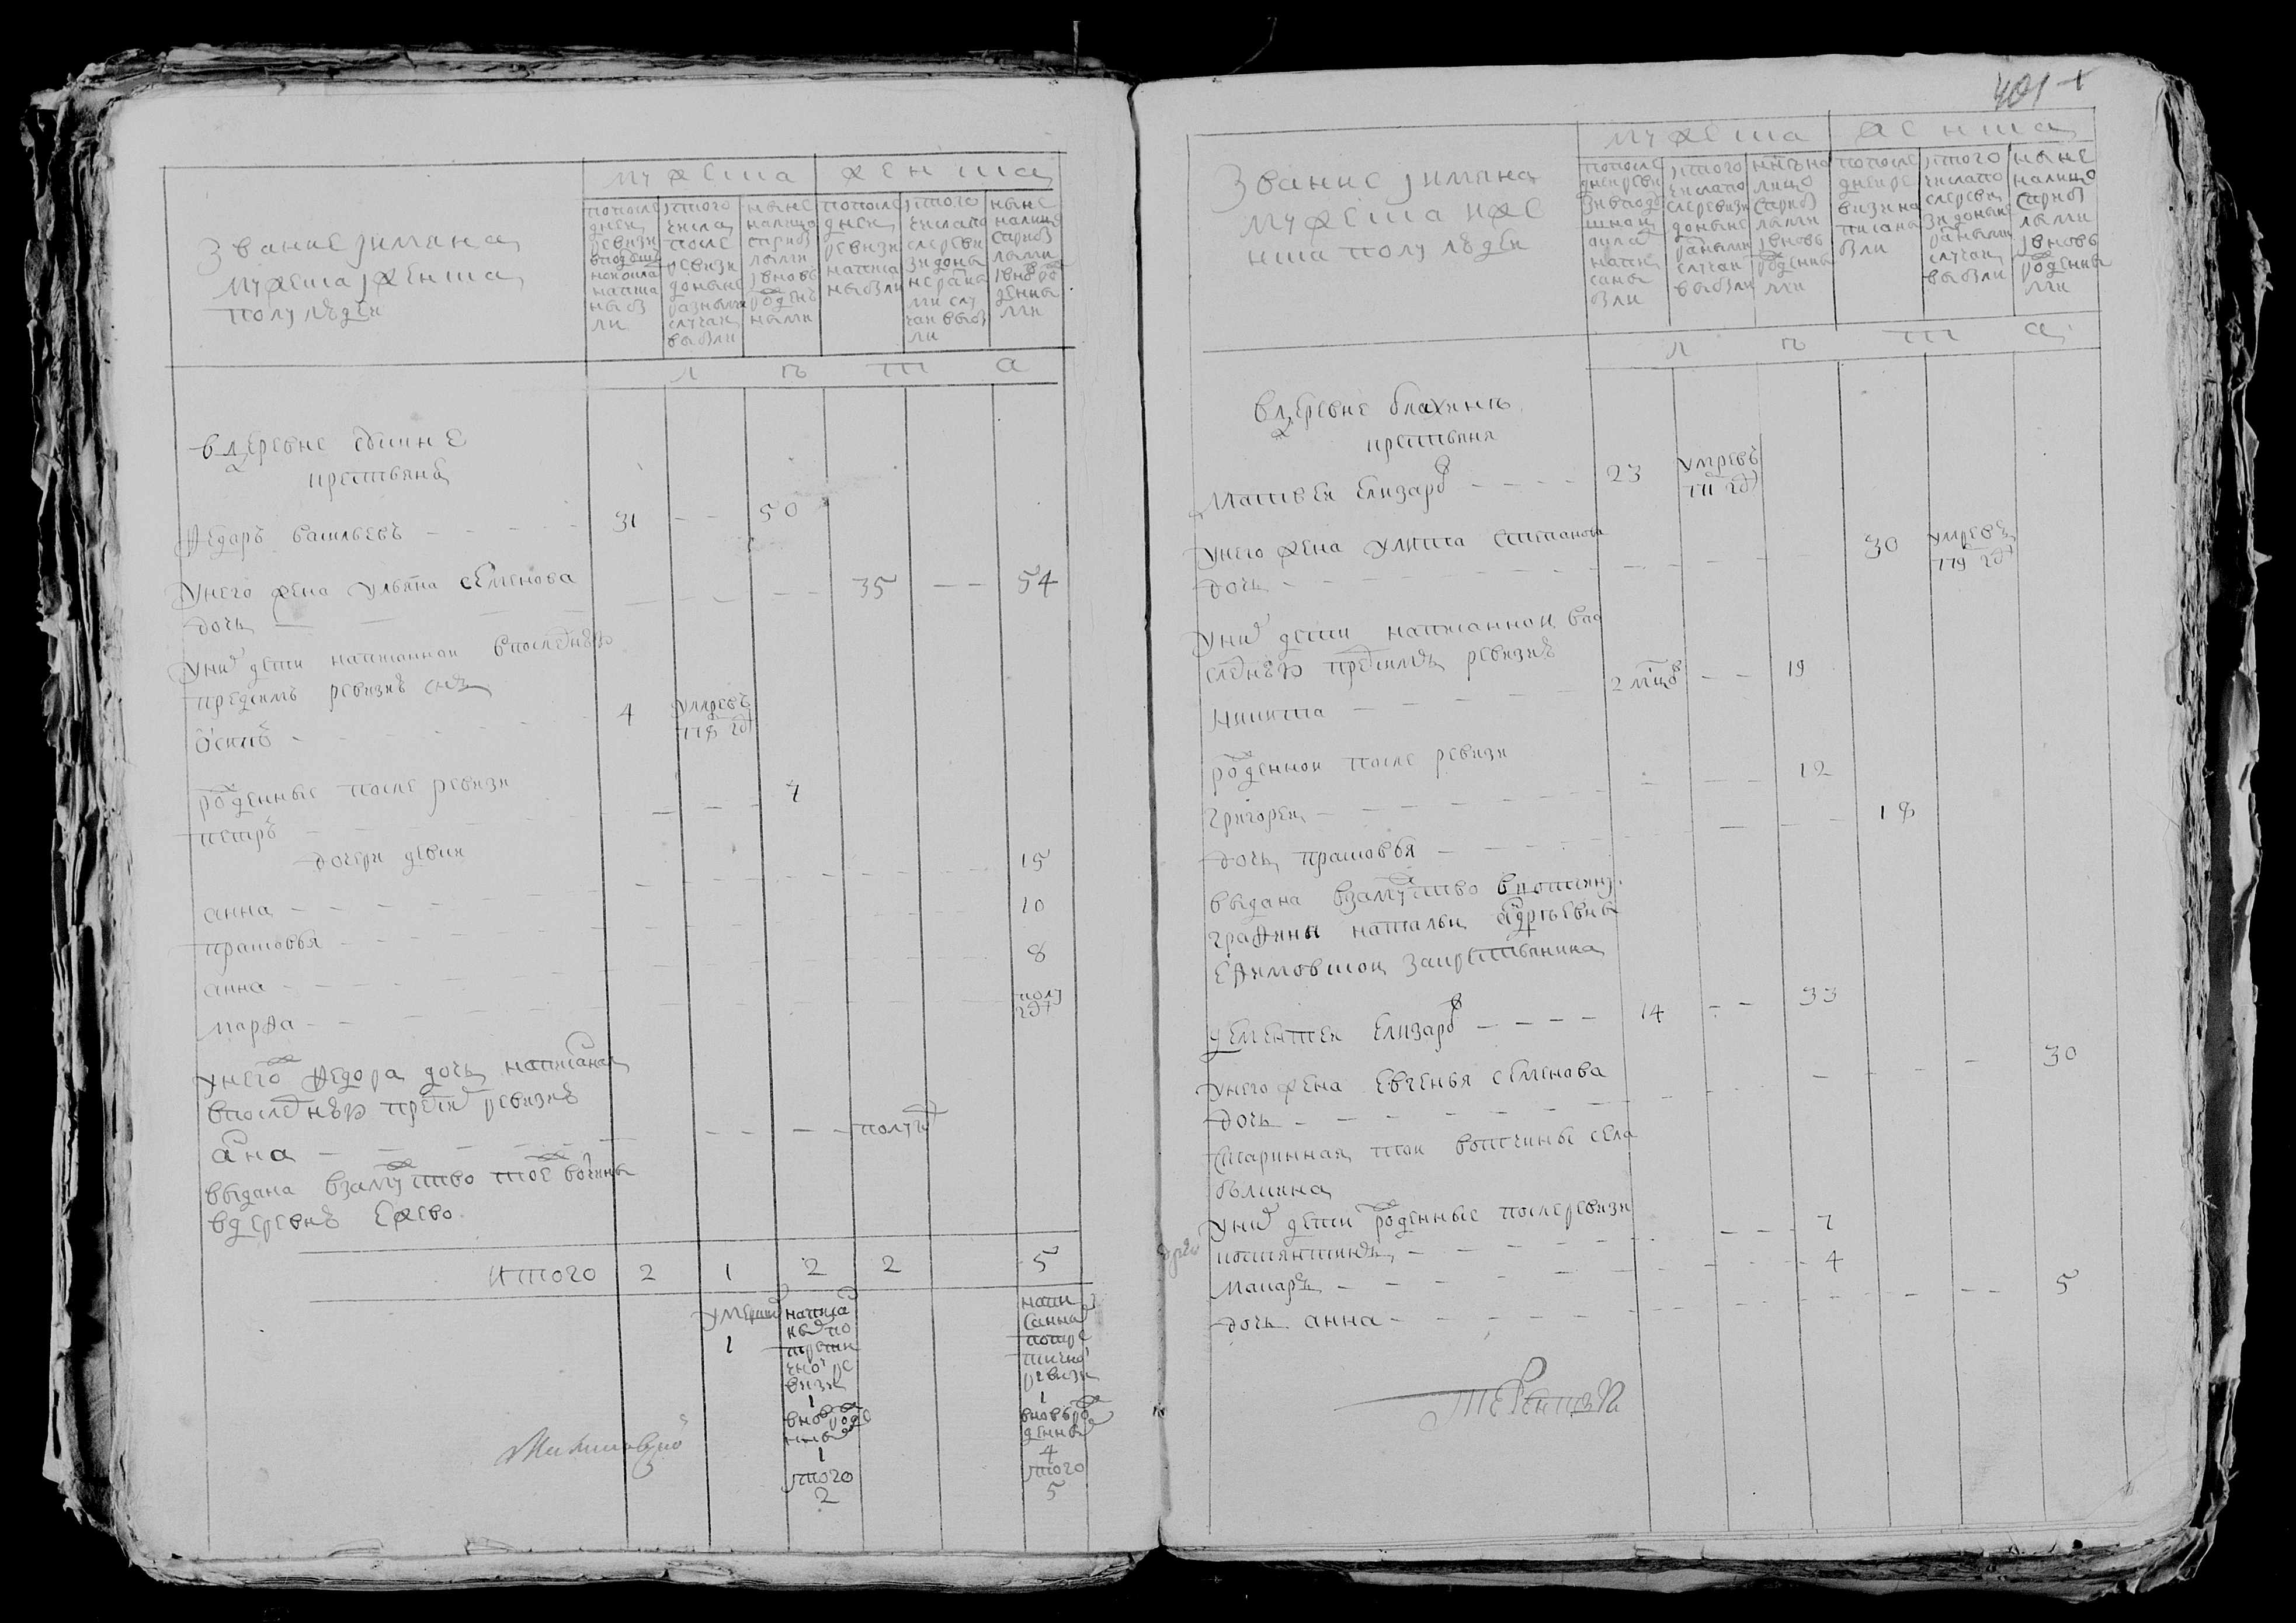 Звание и имяна
мужеска и женска
полу людей
мужеска
женска
по после
дней
ревизи
в подуш
ной окла
написа
ны бы
ли
ис того
числа
после
ревизи
до ныне
разными
случаи
выбыли
ныне
налицо
с прибы
лыми
и вновь
рожден
ными
по после
дней
ревизи
написа
ны были
ис того
числа по
сле реви
зи до ны
не разны
ми слу
чаи выбы
ли
ныне
налицо
с прибы
лыми
и внов ро
жденны
ми
л ѣ т а
в деревне
крестьяня
Федаръ васильевъ 31 50
У него жена ульяна семенова
дочь 35 54
У них дети написанной в последнѣю
пред сим ревизиѣ снъ
осипъ 4 умре въ
778 год
рожденные после ревизи
петръ 7
дочери девки
анна 15
прасковья 10
анна 8
марфа полу
год
У него ж Федора дочь написаная
в последнѣю пред сим ревизиѣ
Анна полугод
выдана взамужство тое ж вочины
в деревнѣ Ежево
итого 2 1 2 2 5
умерших
1
написа
ных по
прежни
чной ре
визи
1
вновь
рожде
нных
1
итого
2
напи
санна
по пре
жнично
ревизи
1
вновь ро
жденных
4
итого
5
401
Звание и имяна
мужеска и же
нска полу людей
мужеска
женска
по после
дней реви
зи в поду
шной
окла
напи
саны
были
ис того
числа по
сле ревизи
до ныне
разными
случаи
выбыли
ныне на
лицо
с прибы
лыми
и вновь
рожденны
ми
по после
дней ре
визи на
писаны
были
ис того
числа по
сле реви
зи до ныне
разными
случаи
выбыли
ныне
налицо
с прибы
лыми
и вновь
рожденны
ми
л ѣ т а
в деревне
крестьяня
Матвей Елизаров 23 умре въ
771 год
У него жена улита степанова
дочь 30 умре въ
779 год
У них дети написанной в по
следнѣю пред сим ревизиѣ
Никита 2 мсцов 19
рожденной после ревизи
григорей 12
дочь прасковья 18
выдана взамужство в вотчину
графини натальи
Ефимовской за крестьянина
дементей Елизаров 14 33
У него жена Евгенья семенова
дочь 30
Старинная той вотчины села

У них дети рожденные после ревизи
костянтинъ 7
макаръ 4
дочь анна 5